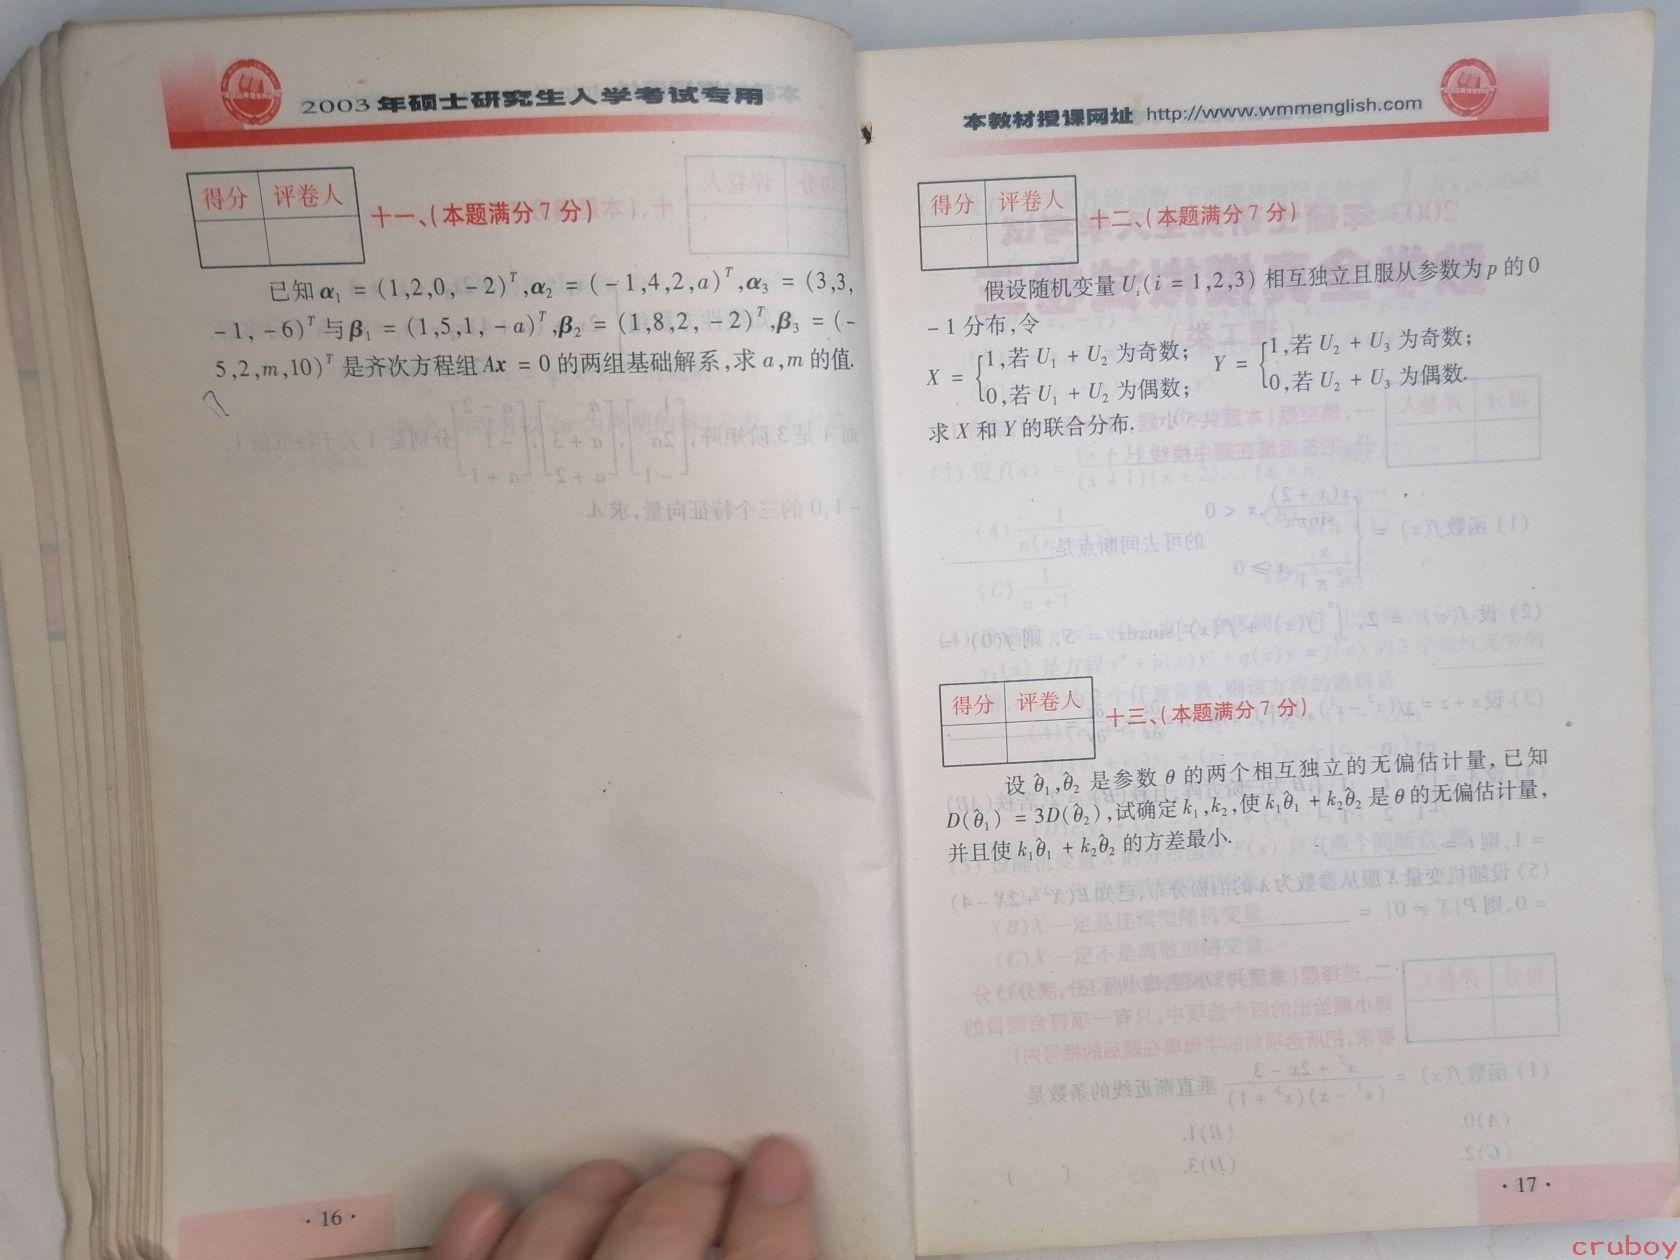 2003年硕士研究生入学考试专用
得分 评卷人
十一、(本题满分7分)
已知α₁ = (1,2,0,-2)ᵀ,α₂ = (-1,4,2,a)ᵀ,α₃ = (3,3,
-1,-6)ᵀ与β₁ = (1,5,1,-a)ᵀ,β₂ = (1,8,2,-2)ᵀ,β₃ = (-
5,2,m,10)ᵀ是齐次方程组Ax = 0的两组基础解系,求a,m的值.
·16·
本教材授课网址 http://www.wmmenglish.com
得分 评卷人
十二、(本题满分7分)
假设随机变量Uᵢ(i = 1,2,3)相互独立且服从参数为p的0
-1分布,令
X = {1,若U₁ + U₂为奇数; 0,若U₁ + U₂为偶数; Y = {1,若U₂ + U₃为奇数; 0,若U₂ + U₃为偶数.
求X和Y的联合分布.
得分 评卷人
十三、(本题满分7分)
设θ̂₁,θ̂₂是参数θ的两个相互独立的无偏估计量,已知
D(θ̂₁) = 3D(θ̂₂),试确定k₁,k₂,使k₁θ̂₁ + k₂θ̂₂是θ的无偏估计量,
并且使k₁θ̂₁ + k₂θ̂₂的方差最小.
·17·
cruboy